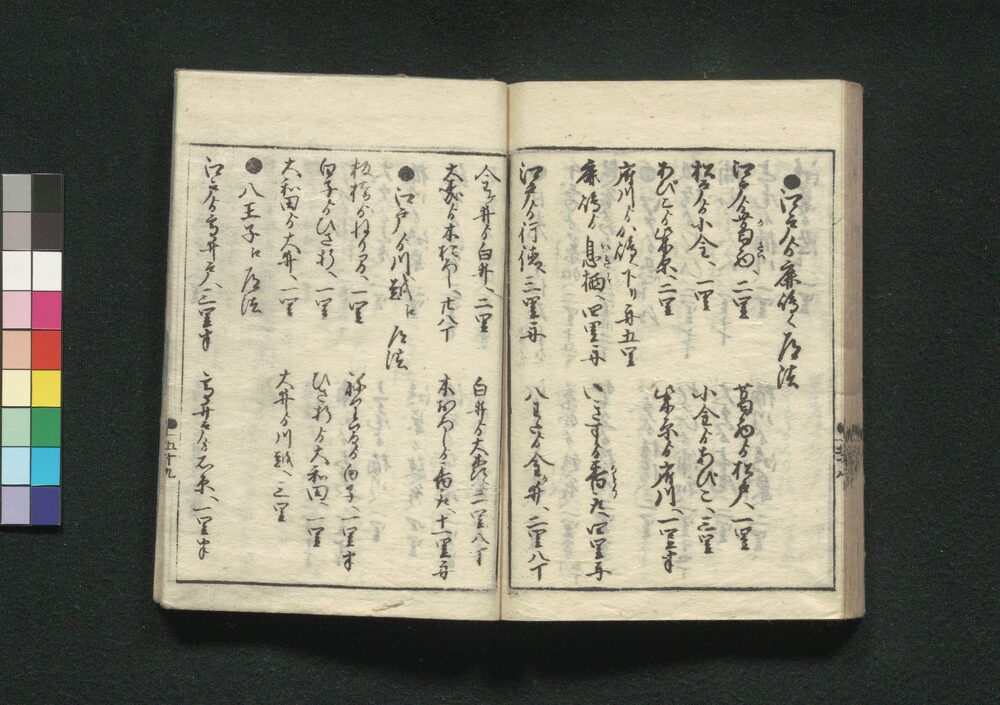 ●江戸ゟ鹿嶋へ道法
江戸ゟ葛西へ二里 葛西ゟ松戸へ一里
松戸ゟ小金へ一里 小金ゟあびこへ三里
あびこゟ布木へ二里 布木ゟ府川へ一里半
府川ゟ鹿嶋へ下り舟五里
鹿嶋ゟ息栖へ四里舟 いきすゟ香取へ四里舟
江戸ゟ行徳へ三里舟 八わたゟ金ヶ井へ二里八丁
金ヶ井ゟ白井へ二里 白井ゟ大森へ二里八丁
大森ゟ木おろしへ廿八丁 木おろしゟ香取へ十一里舟
●江戸ゟ川越に道法
板橋ゟねりまへ一里 ねりまゟ白子へ一里半
白子ゟひざ折へ一里 ひざ折ゟ大和田へ一里
大和田ゟ大井へ一里 大井ゟ川越へ三里
●八王子に道法
江戸ゟ高井戸へ三里半 高井戸ゟ石原へ一里半
五十九